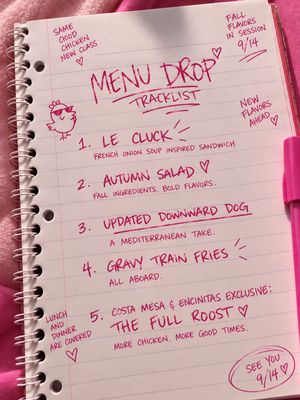 SAME
GOOD
CHICKEN
NEW CLASS
FALL
FLAVORS
IN SESSION
9/14
MENU DROP
TRACKLIST
NEW
FLAVORS
AHEAD
1. LE CLUCK
FRENCH ONION SOUP INSPIRED SANDWICH
2. AUTUMN SALAD
FALL INGREDIENTS. BOLD FLAVORS.
3. UPDATED DOWNWARD DOG
A MEDITERRANEAN TAKE.
4. GRAVY TRAIN FRIES
ALL ABOARD.
LUNCH
AND
DINNER
ARE COVERED
5. COSTA MESA & ENCINITAS EXCLUSIVE:
THE FULL ROOST
MORE CHICKEN. MORE GOOD TIMES.
SEE YOU
9/14